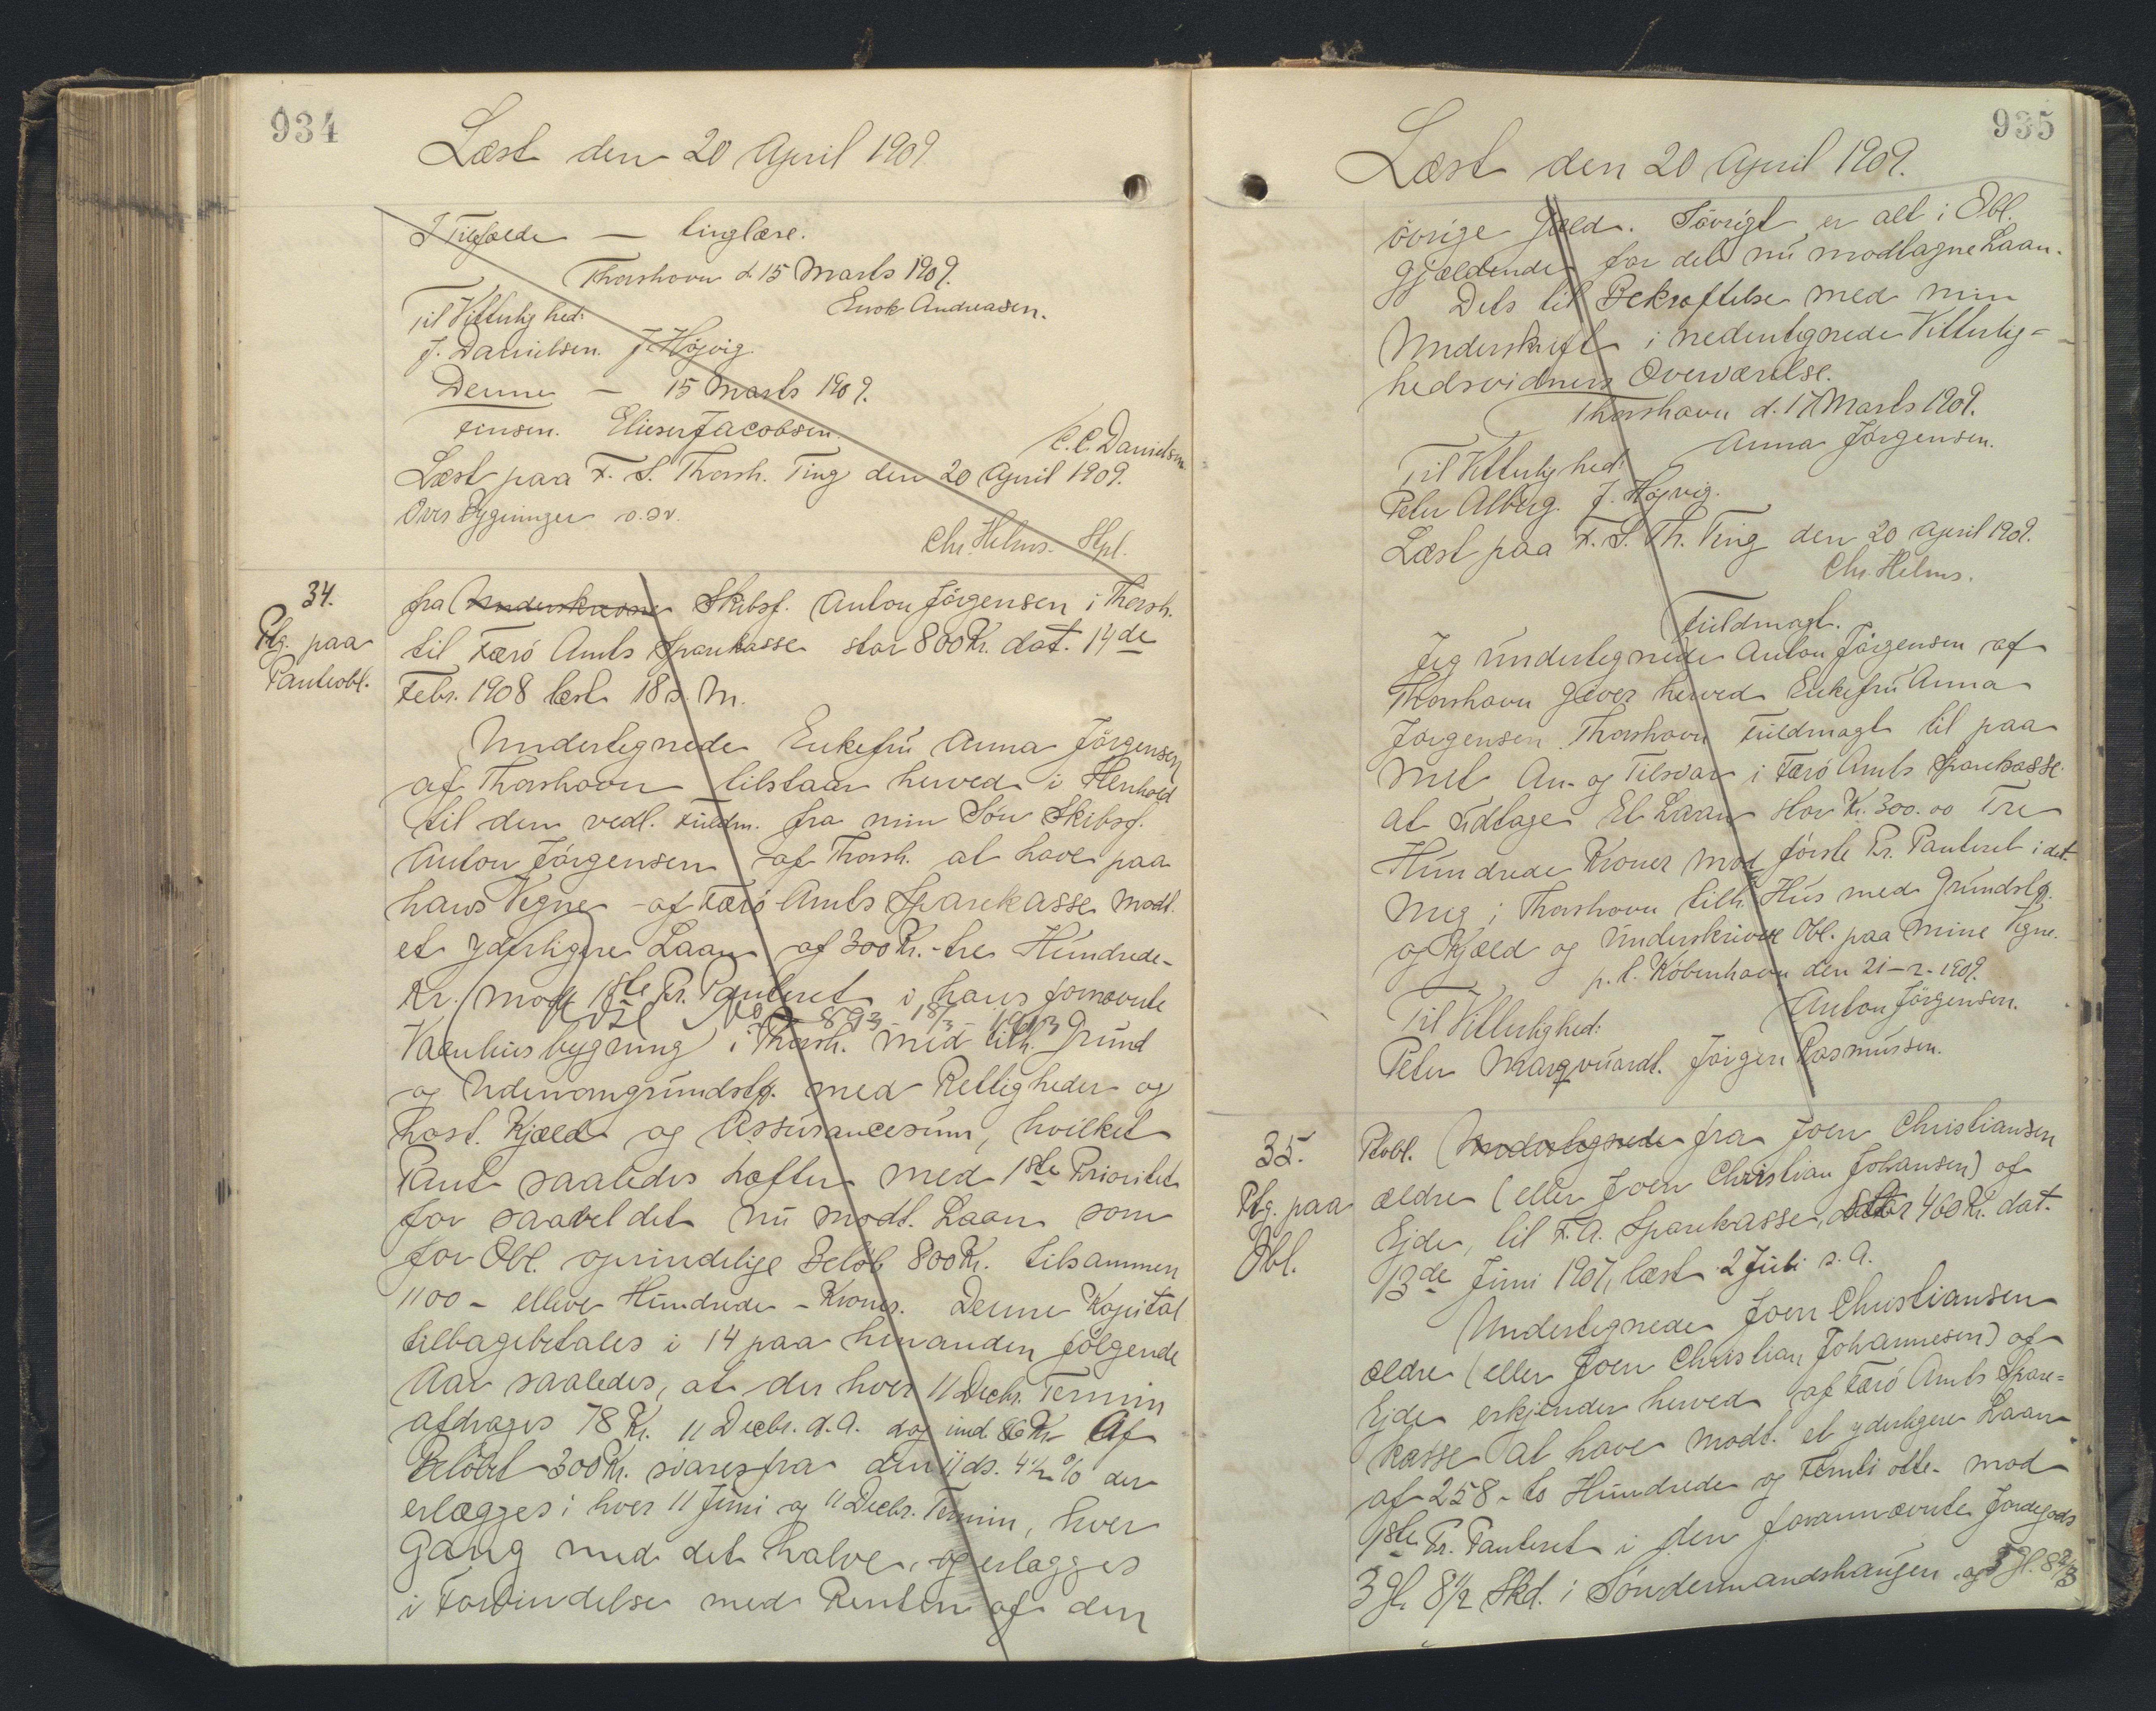 934
Læst den 20 April 1909
I Tilfælde — tinglæse.
Thorshavn d. 15 Marts 1909.
Enok Andreasen.
Til Vitterlighed:
J. Danielsen. J. Højvig.
Denne — 15 Marts 1909.
Finsen. Elieser Jacobsen.
C. C. Danielsen
Læst paa F. S. Thorsh. Ting den 20 April 1909.
Over Bygninger o.s.v.
Chr. Helms. Stpl.
34.
Ptg. paa
Panteobl.
fra Underskrevne Skibsf. Anton Jörgensen i Thorsh.
til Færö Amts Sparekasse stor 800 Kr. dat. 14de
Febr. 1908 læst 18 s. M.
Undertegnede Enkefru Anna Jörgensen
af Thorshavn tilstaar herved i Henhold
til den vedl. Fuldm. fra min Sön Skibsf.
Anton Jörgensen af Thorsh. at have paa
hans Vegne af Færö Amts Sparekasse modt.
et yderligere Laan af 300 Kr. - tre Hundrede -
Kr. mod 1ste Pr. Panteret i hans fornævnte
Udsl No 893 18/3 1913
Vaanhusbygning i Thorsh. med tilh. Grund
og Udenomgrundstk. med Rettigheder og
Host. Kjæld og Assurancesum, hvilket
Pant saaledes hæfter med 1ste Prioritet
for saavel det nu modt. Laan som
for Obl. oprindelige Belöb 800 Kr. tilsammen
1100 - ellive Hundrede - Kroner. Denne Kapital
tilbagebetales i 14 paa hinanden fölgende
Aar saaledes, at der hver 11 Decbr. Termin
afdrages 78 Kr. 11 Decbr. d. A. dog ind. 86 Kr. Af
Belöbet 300 Kr. svares fra den 11 ds. 4 1/2 % der
erlægges i hver 11 Juni og 11 Decbr. Termin, hver
Gang med det halve, og erlægges
i Forbindelse med Renten af den
935
Læst den 20 April 1909.
övrige Gjæld. Iövrigt er alt i Obl.
gjældende for det nu modtagne Laan.
Dets til Bekræftelse med min
Underskrift i nedentegnede Vitterlig=
hedsvidners Overværelse.
Thorshavn d. 17 Marts 1909.
Anna Jörgensen.
Til Vitterlighed:
Peter Alberg. J. Højvig.
Læst paa F. S. Th. Ting den 20 April 1909.
Chr. Helms.
Fuldmagt.
Jeg undertegnede Anton Jörgensen af
Thorshavn giver herved Enkefru Anna
Jörgensen Thorshavn Fuldmagt til paa
mit An- og Tilsvar i Færö Amts Sparekasse
at udtage Et Laan stor Kr. 300.00 Tre
Hundrede Kroner mod förste Pr. Panteret i det
mig i Thorshavn tilh. Hus med Grundstk.
og Kjæld og underskrive Obl. paa mine Vegne.
p. t. København den 21-2-1909.
Anton Jörgensen.
Til Vitterlighed:
Peter Marqvuardt. Jörgen Rasmussen.
35.
Ptg. paa
Obl.
Ptobl. Undertegnede fra Joen Christiansen
ældre (eller Joen Christian Johansen) af
Ejde, til F. A. Sparekasse, stor 460 Kr. dat.
13de Juni 1907, læst 2 Juli s. A.
Undertegnede Joen Christiansen
ældre (eller Joen Christian Johannesen) af
Ejde erkjender herved af Færö Amts Spare=
kasse at have modt. et yderligere Laan
af 258 - to Hundrede og Femti otte - mod
1ste Pr. Panteret i den forannævnte Jordegods
3 Gl. 8 1/2 Skd. i Söndermandshaugen og 3 Gl. 8 2/3